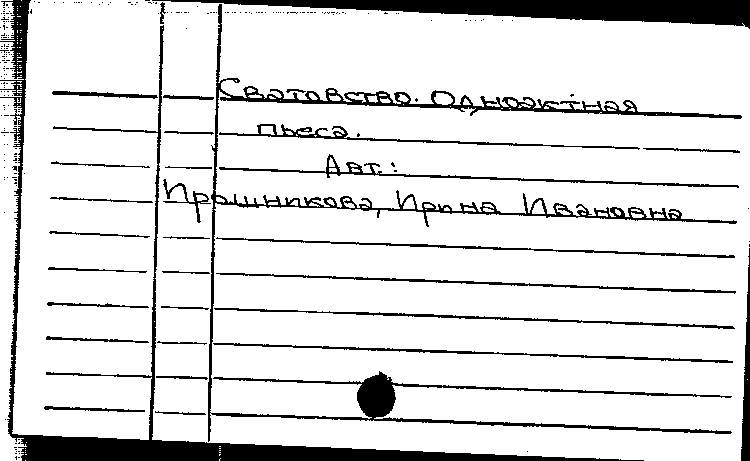 Сватовство. Одноактная
пьеса.
Авт.:
Ирошникова, Ирина Ивановна